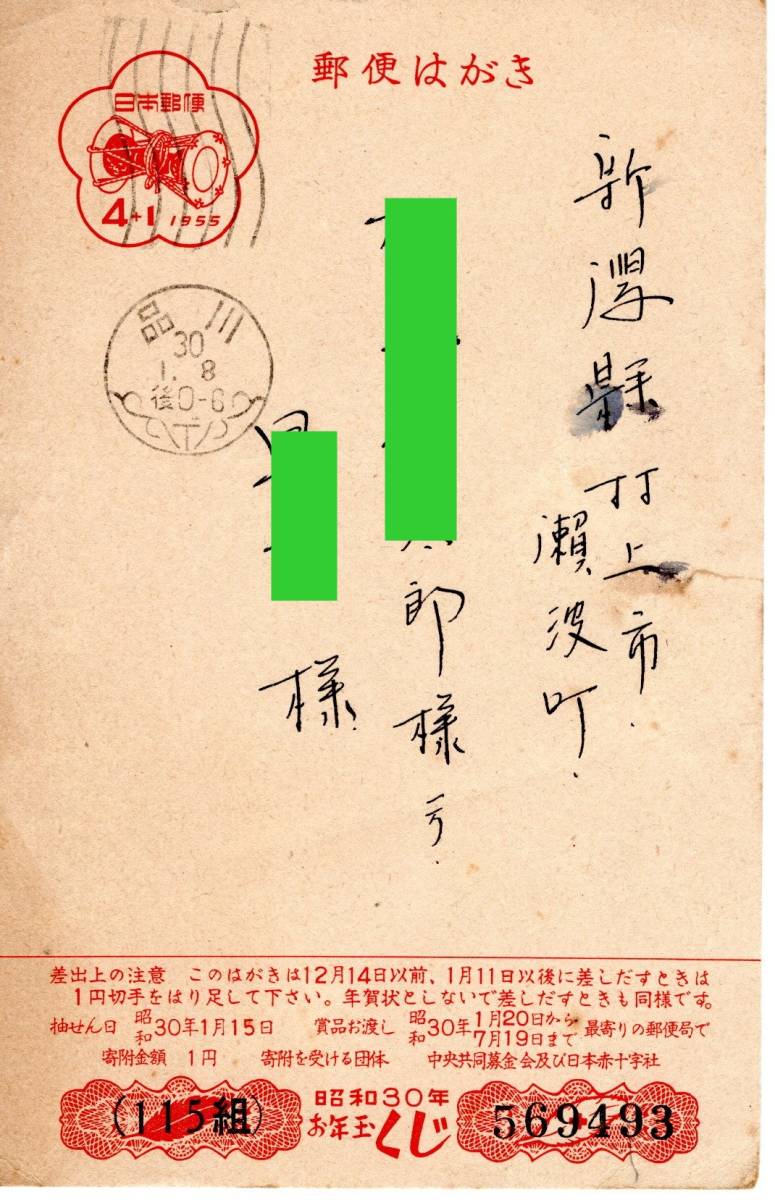 郵便はがき
日本郵便
4+1 1955
品川
30
1. 8
後0-6
新潟縣村上市.
瀬波町.
郎様方.
様
差出上の注意 このはがきは12月14日以前、1月11日以後に差しだすときは
1円切手をはり足して下さい。年賀状としないで差しだすときも同様です。
抽せん日 昭和30年1月15日 賞品お渡し 昭和30年1月20日から7月19日まで 最寄りの郵便局で
寄附金額 1円 寄附を受ける団体 中央共同募金会及び日本赤十字社
(115組) 昭和30年 お年玉くじ 569493